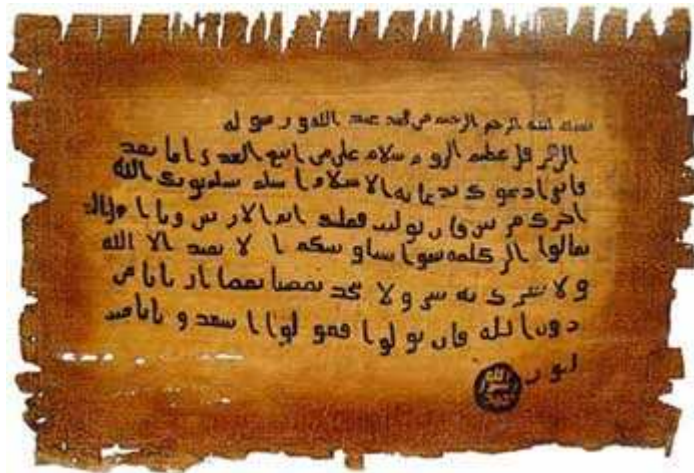 بسم الله الرحمن الرحيم من محمد عبد الله و رسوله
الى هرقل عظيم الروم سلام على من اتبع الهدى اما بعد
فاني ادعوك بدعاية الاسلام اسلم تسلم يوتك الله
اجرك مرتين فان توليت فعليك اثم الاريسين ويا اهل
تعالوا الى كلمة سوا بيننا وبينكم الا نعبد الا الله
ولا نشرك به شي ولا يتخذ بعضنا بعضا اربابا من
دون الله فان تولوا فقولوا اشهدوا بانا مسلمـ
ـون
الله